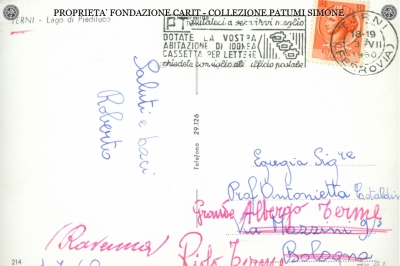 PROPRIETA' FONDAZIONE CARIT - COLLEZIONE PATUMI SIMONE
TERNI - Lago di Piediluco
aiutateci a servirvi meglio
DOTATE LA VOSTRA
ABITAZIONE DI IDONEA
CASSETTA PER LETTERE
chiedete consiglio all'ufficio postale
TERNI
18-19
VII
(FERROVIA)
Saluti e baci
Roberto
Telefono 29.126
Egregia Sig.ra
Prof. Antonietta Castaldini
Grande Albergo Terme
Via Mazzini
Bologna
(Ravenna)
Riolo Terme
214